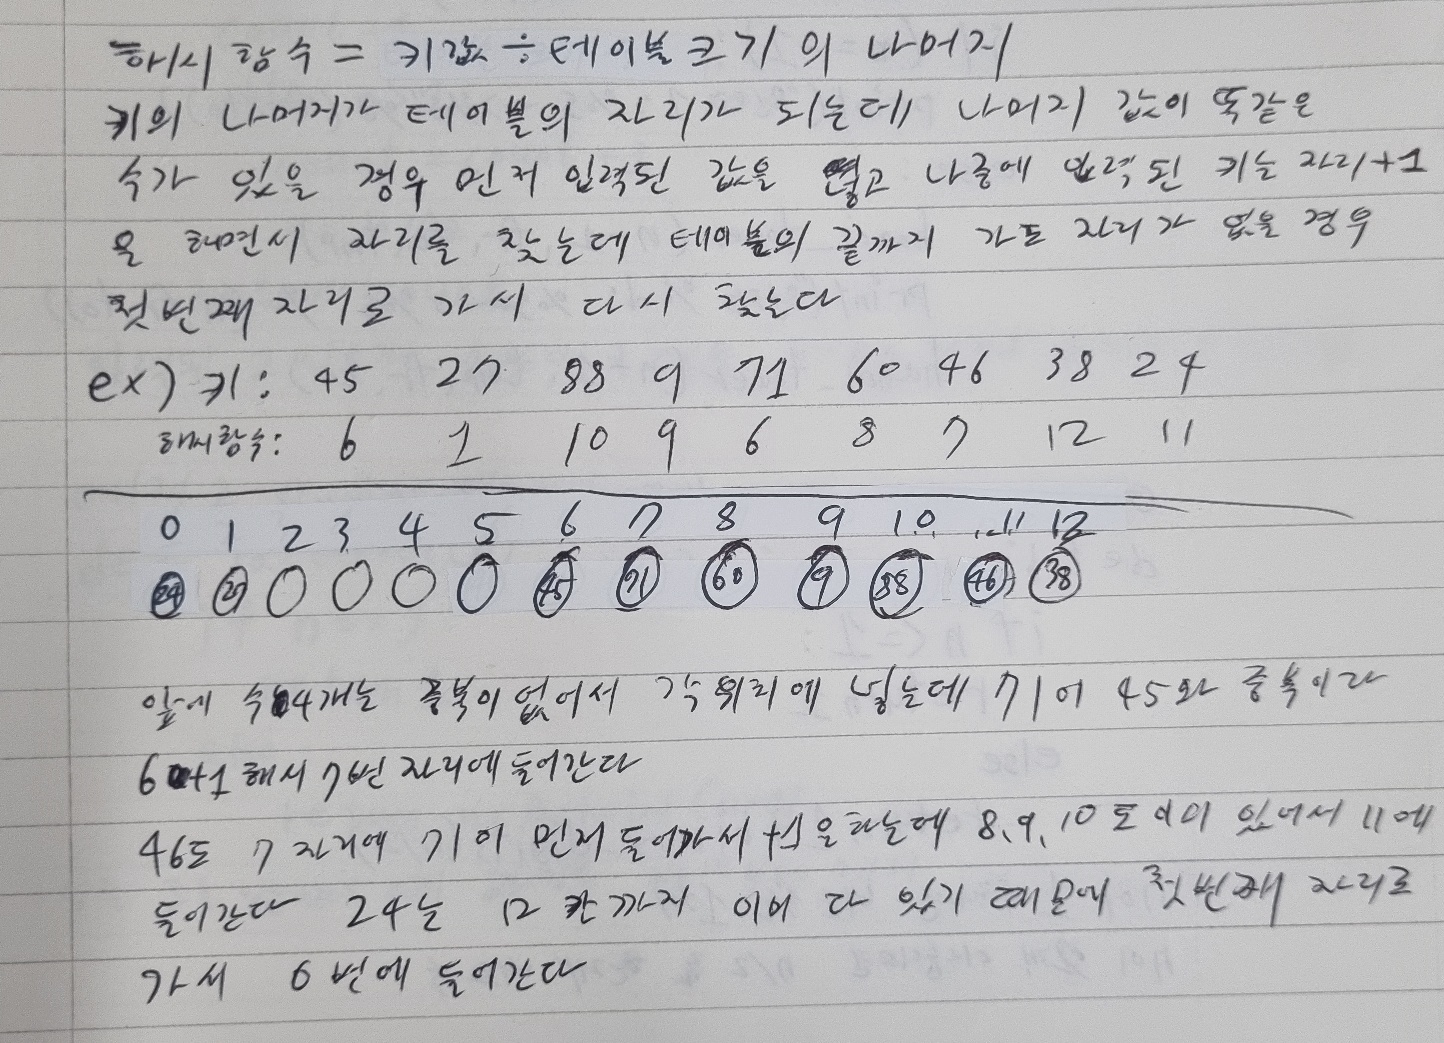 해시 함수 = 키값 ÷ 테이블 크기 의 나머지
키의 나머지가 테이블의 자리가 되는데 나머지 값이 똑같은
수가 있을 경우 먼저 입력된 값을 넣고 나중에 입력된 키는 자리+1
을 하면서 자리를 찾는데 테이블의 끝까지 가도 자리가 없을 경우
첫번째 자리로 가서 다시 찾는다
ex) 키: 45 27 88 9 71 60 46 38 24
해시함수: 6 1 10 9 6 8 7 12 11
0 1 2 3 4 5 6 7 8 9 10 11 12
24 27 45 71 60 9 88 46 38
앞에 수 4개는 중복이 없어서 각 위치에 넣는데 71이 45와 중복이라
6+1 해서 7번 자리에 들어간다
46도 7 자리에 71이 먼저 들어가서 +1을 하는데 8, 9, 10 도 이미 있어서 11에
들어간다 24는 12 칸까지 이미 다 있기 때문에 첫번째 자리로
가서 0번에 들어간다